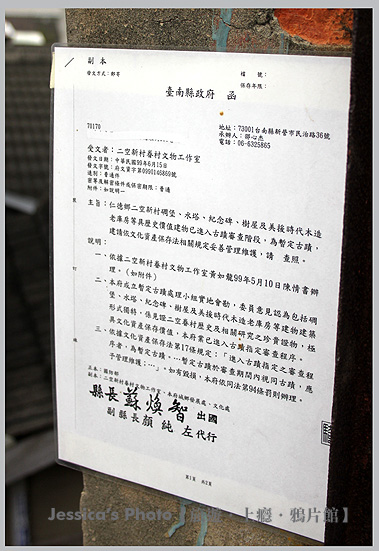 副 本
發文方式：郵寄
檔　　號：
保存年限：
臺南縣政府　函
70170
地址：73001台南縣新營市民治路36號
承辦人：邵心杰
電話：06-6325865
受文者：二空新村眷村文物工作室
發文日期：中華民國99年6月15日
發文字號：府文資字第0990146869號
速別：普通件
密等及解密條件或保密期限：普通
附件：如說明一
主旨：仁德鄉二空新村碉堡、水塔、紀念碑、樹屋及美援時代木造
老庫房等具歷史價值建物已進入古蹟審查階段，為暫定古蹟，
建請依文化資產保存法相關規定妥善管理維護，請　查照。
說明：
一、依據二空新村眷村文物工作室黃如龍99年5月10日陳情書辦
理。（如附件）
二、本府成立暫定古蹟處理小組實地會勘，委員意見認為包括碉
堡、水塔、紀念碑、樹屋及美援時代木造老庫房等建物建築
形式獨特，係見證二空眷村歷史及相關研究之珍貴證物，極
具文化資產保存價值，本府業已進入古蹟指定審查程序。
三、依據文化資產保存法第17條規定：「進入古蹟指定之審查程
序者，為暫定古蹟。…暫定古蹟於審查期間內視同古蹟，應
予管理維護；…」。如有毀損，本府依同法第94條罰則辦理。
正本：國防部
副本：二空新村眷村文物工作室、本府城鄉發展處、文化處
縣長 蘇煥智 出國
副縣長 顏純左 代行
第1頁　共2頁
裝
訂
線
Jessica's Photo【 上癮・鴉片館】